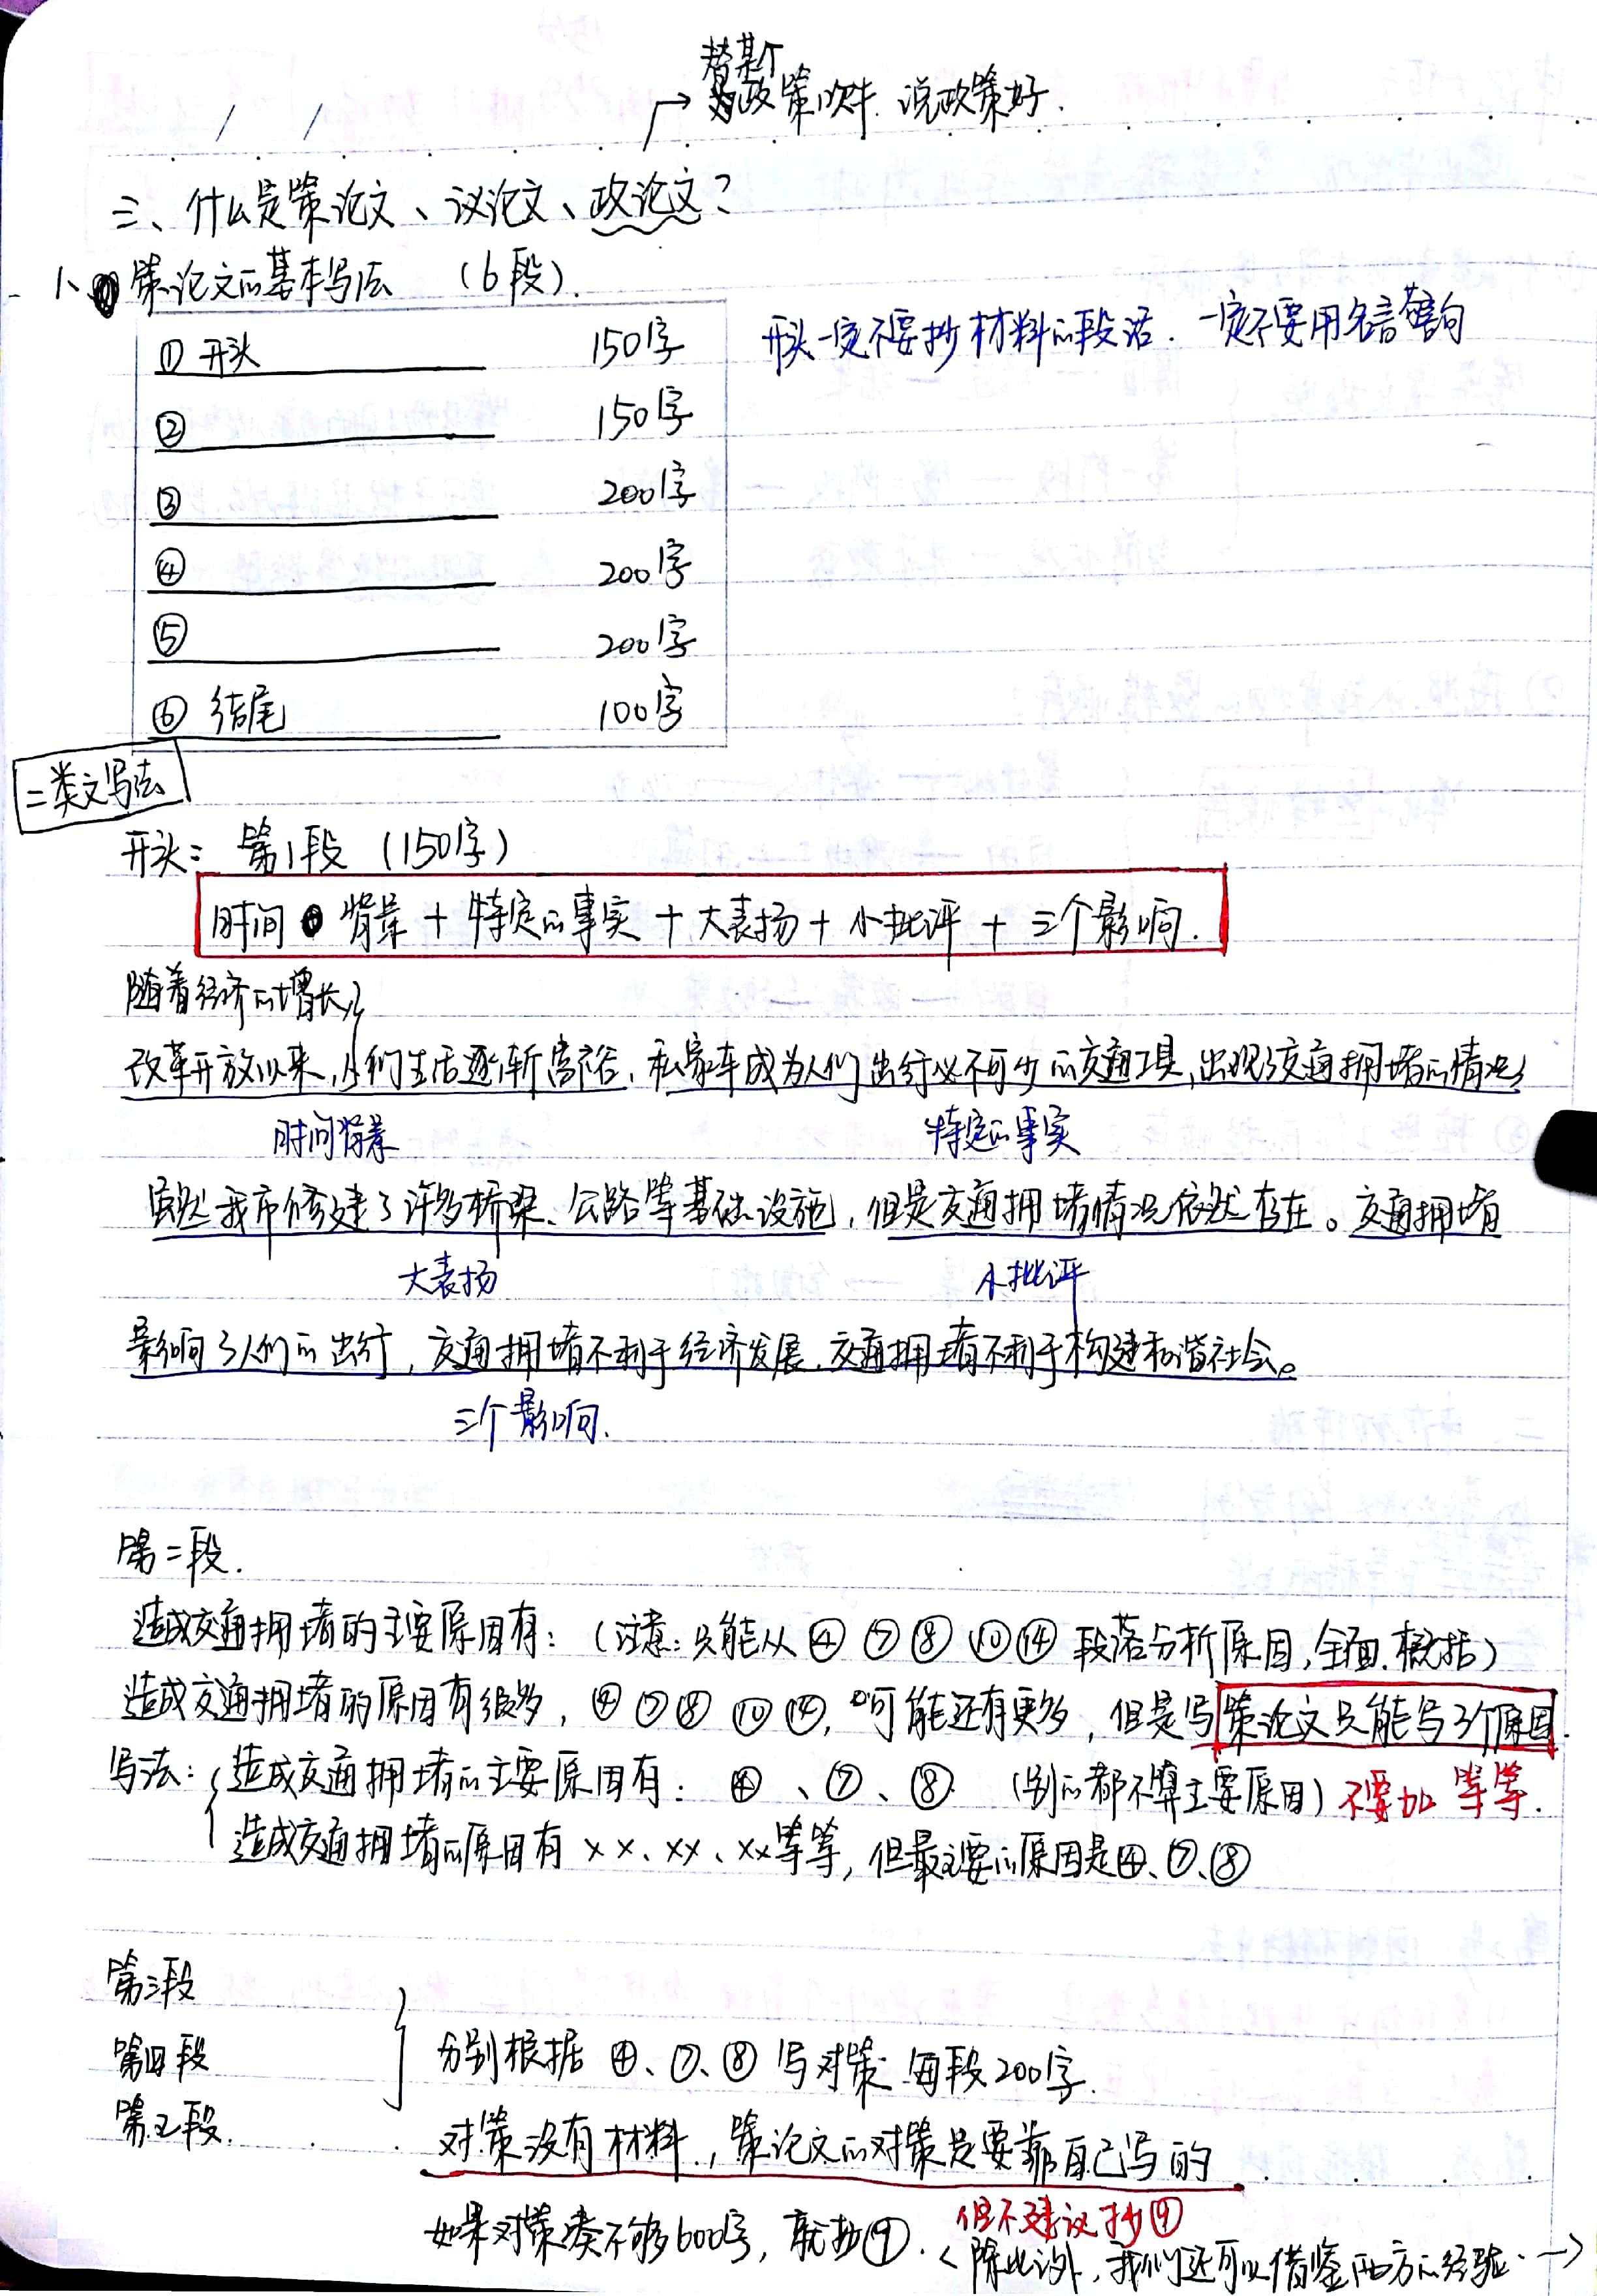 替某个
政策吹牛. 说政策好.
三、什么是策论文、议论文、政论文?
1、策论文的基本写法 (6段).
① 开头 150字
开头一定不要抄材料的段话. 一定不要用名言警句
② 150字
③ 200字
④ 200字
⑤ 200字
⑥ 结尾 100字
二类文写法
开头: 第1段 (150字)
时间背景 + 特定的事实 + 大表扬 + 小批评 + 三个影响.
随着经济的增长,
改革开放以来,人们生活逐渐富裕,私家车成为人们出行必不可少的交通工具,出现了交通拥堵的情况,
时间背景 特定的事实
虽然我市修建了许多桥梁、公路等基础设施,但是交通拥堵情况依然存在。交通拥堵
大表扬 小批评
影响了人们的出行,交通拥堵不利于经济发展,交通拥堵不利于构建和谐社会。
三个影响.
第二段.
造成交通拥堵的主要原因有: (注意: 只能从④⑦⑧⑩⑭段落分析原因,全面.概括)
造成交通拥堵的原因有很多, ④⑦⑧⑩⑭, 可能还有更多, 但是写策论文只能写3个原因.
写法: 造成交通拥堵的主要原因有: ④、⑦、⑧. (别的都不算主要原因) 不要加 等等.
造成交通拥堵的原因有××、××、××等等, 但最主要的原因是④、⑦、⑧
第三段
第四段
第五段.
分别根据④、⑦、⑧写对策. 每段200字.
对策没有材料., 策论文的对策是要靠自己写的
但不建议抄⑨
如果对策凑不够600字, 就抄⑨. <除此以外, 我们还可以借鉴西方的经验. →